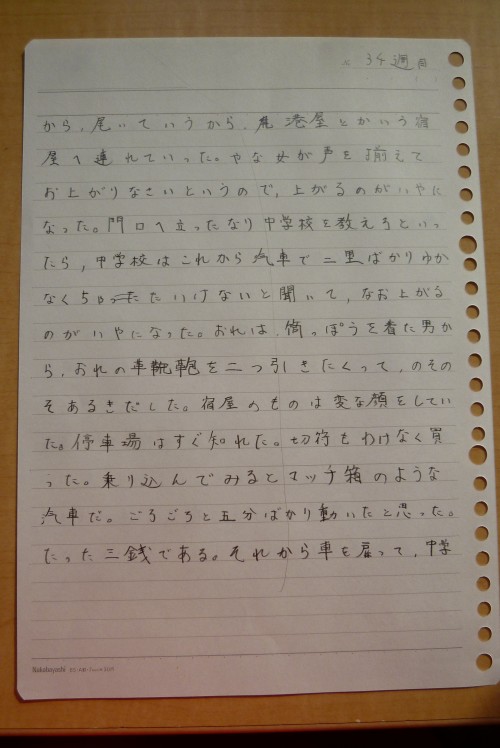 34週目
から、尾いていうから、港屋とかいう宿
屋へ連れていった。やな女が声を揃えて
お上がりなさいというので、上がるのがいやに
なった。門口へ立ったなり中学校を教えろといっ
たら、中学校はこれから汽車で二里ばかりゆか
なく いけないと聞いて、なお上がる
のがいやになった。おれは、筒っぽうを着た男か
ら、おれの革鞄を二つ引きたくって、のその
そあるきだした。宿屋のものは変な顔をしてい
た。停車場はすぐ知れた。切符もわけなく買
った。乗り込んでみるとマッチ箱のような
汽車だ。ごろごろと五分ばかり動いたと思った。
たった三銭である。それから車を雇って、中学
Nakabayashi